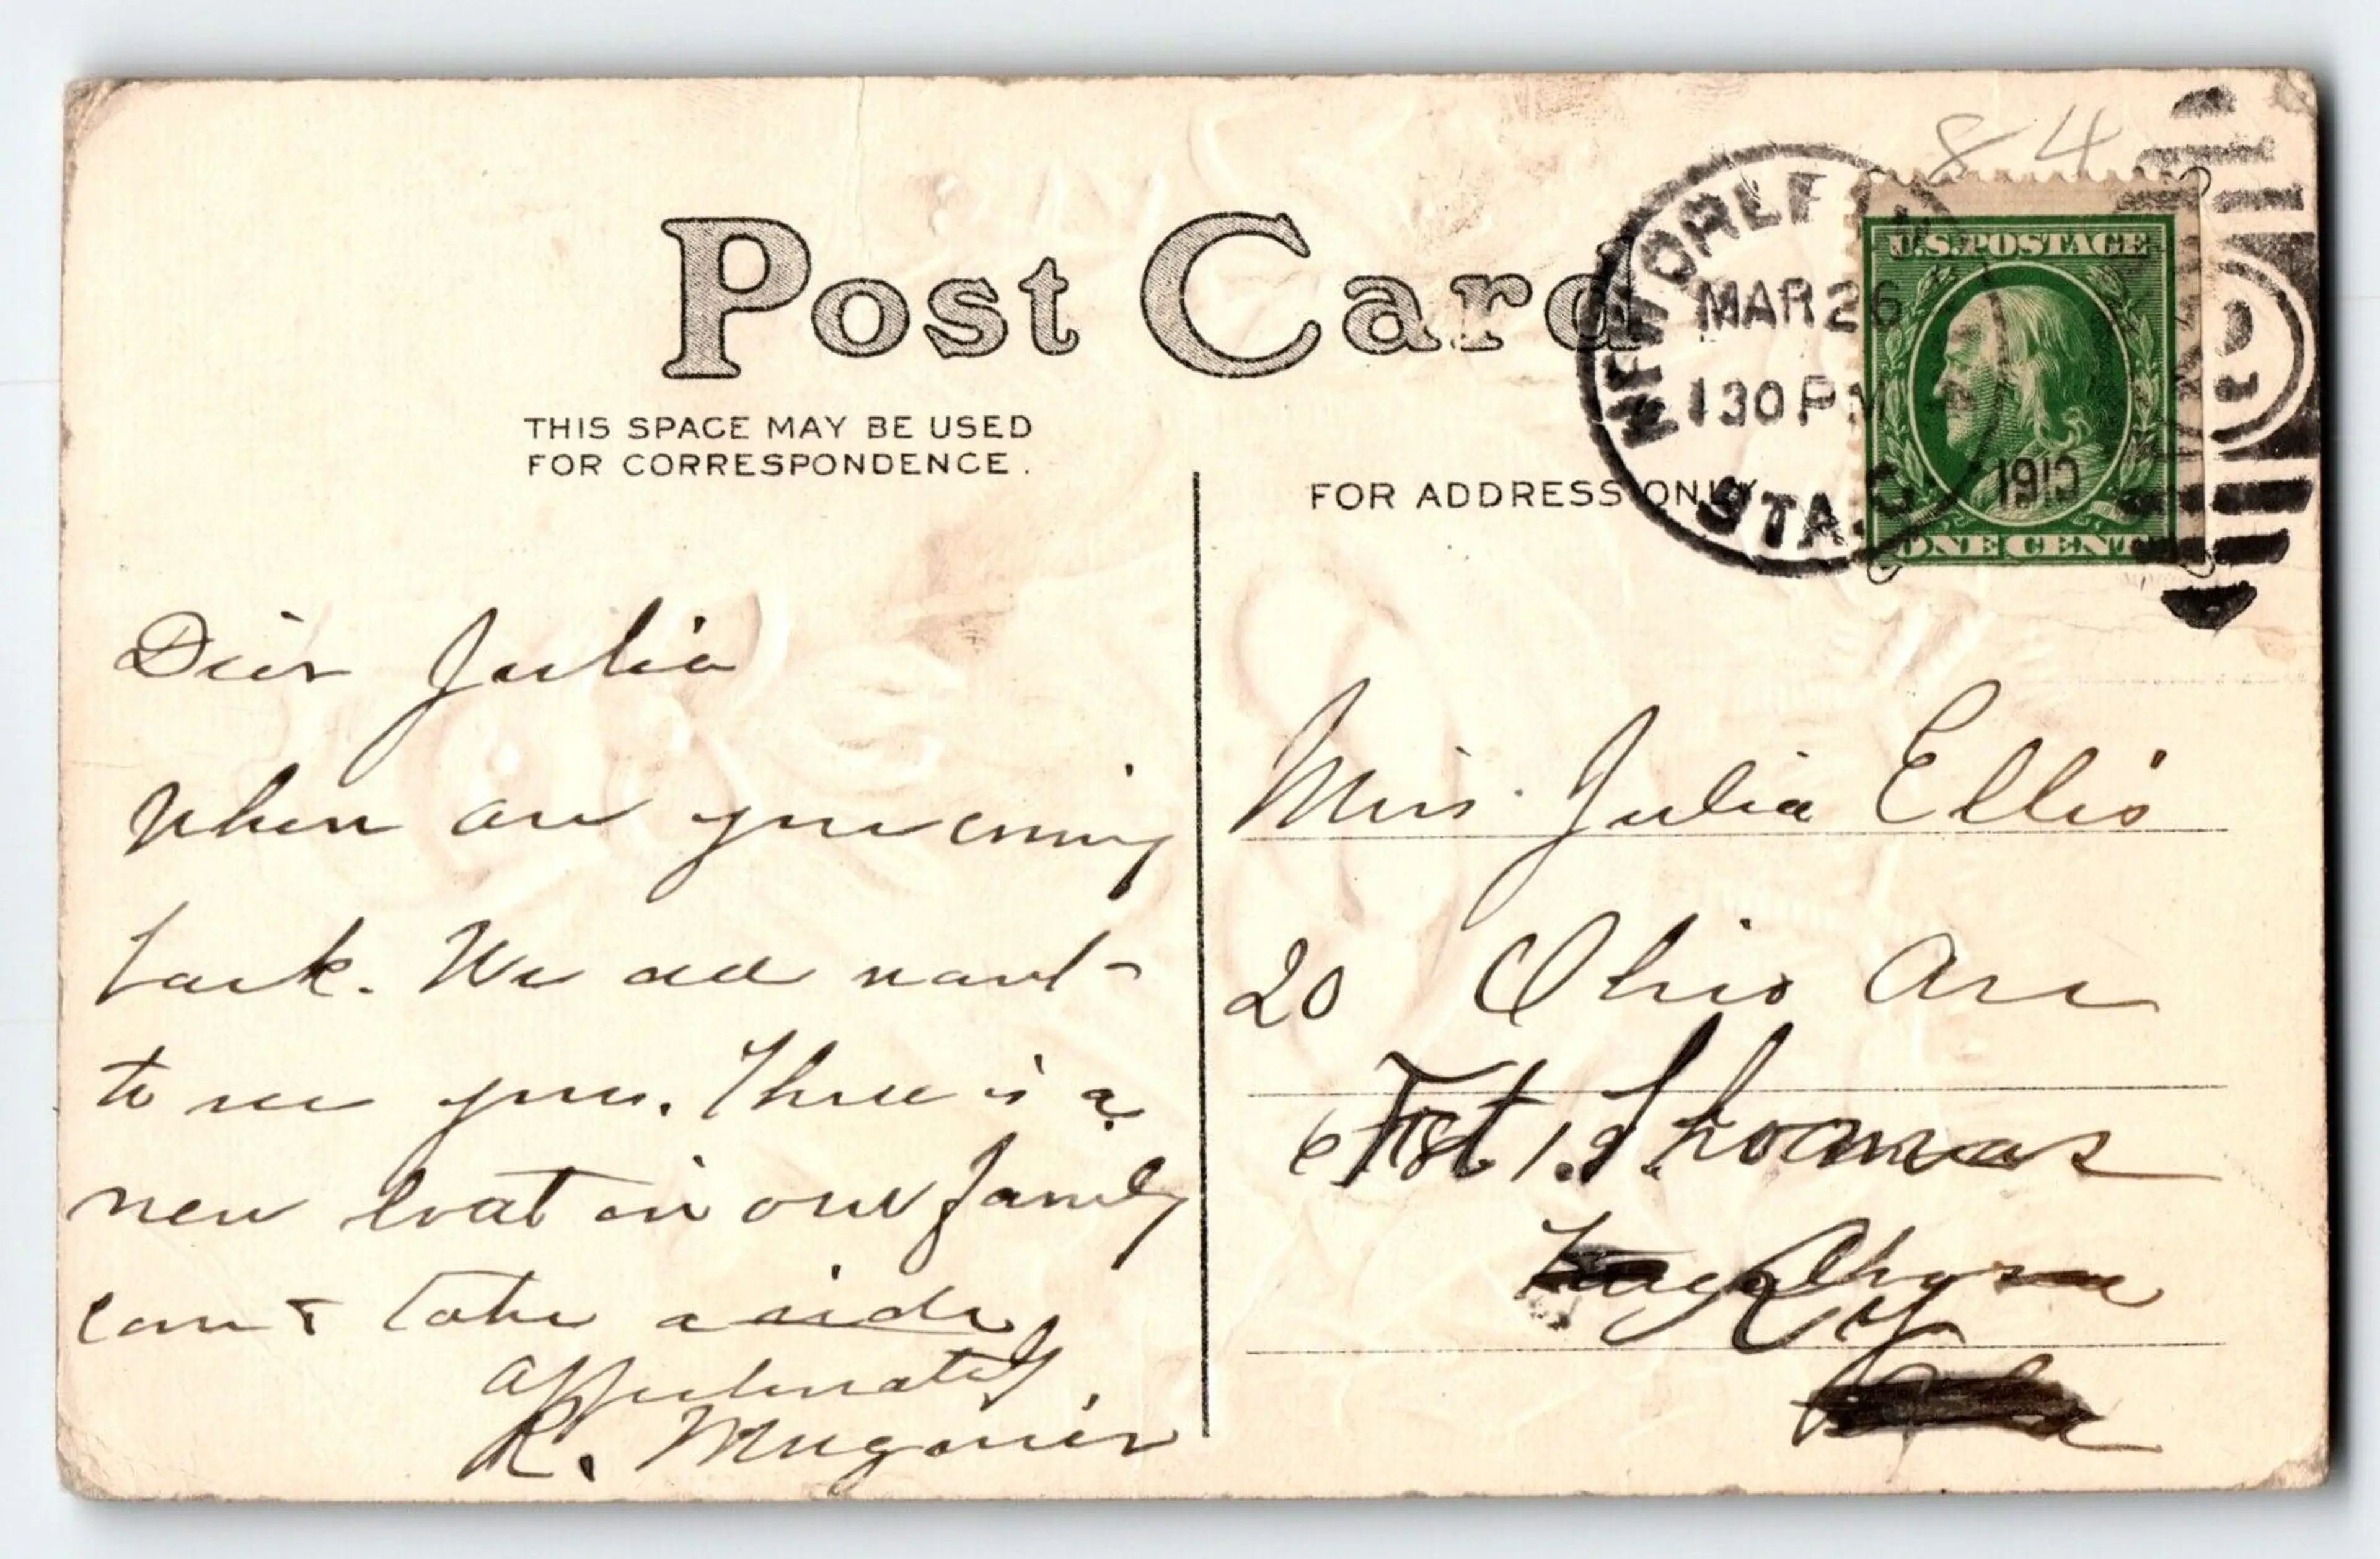 84
Post Card
NEW ORLEANS
MAR 26
130 PM
1910
STA. C
U.S. POSTAGE
ONE CENT
THIS SPACE MAY BE USED
FOR CORRESPONDENCE.
FOR ADDRESS ONLY
Dear Julia
When are you coming
back. We all want
to see you. There is a
new boat in our family
come & take a ride
affectionately,
R. Mugnier
Miss Julia Ellis
20 Ohio Ave
Fort Thomas
Ky